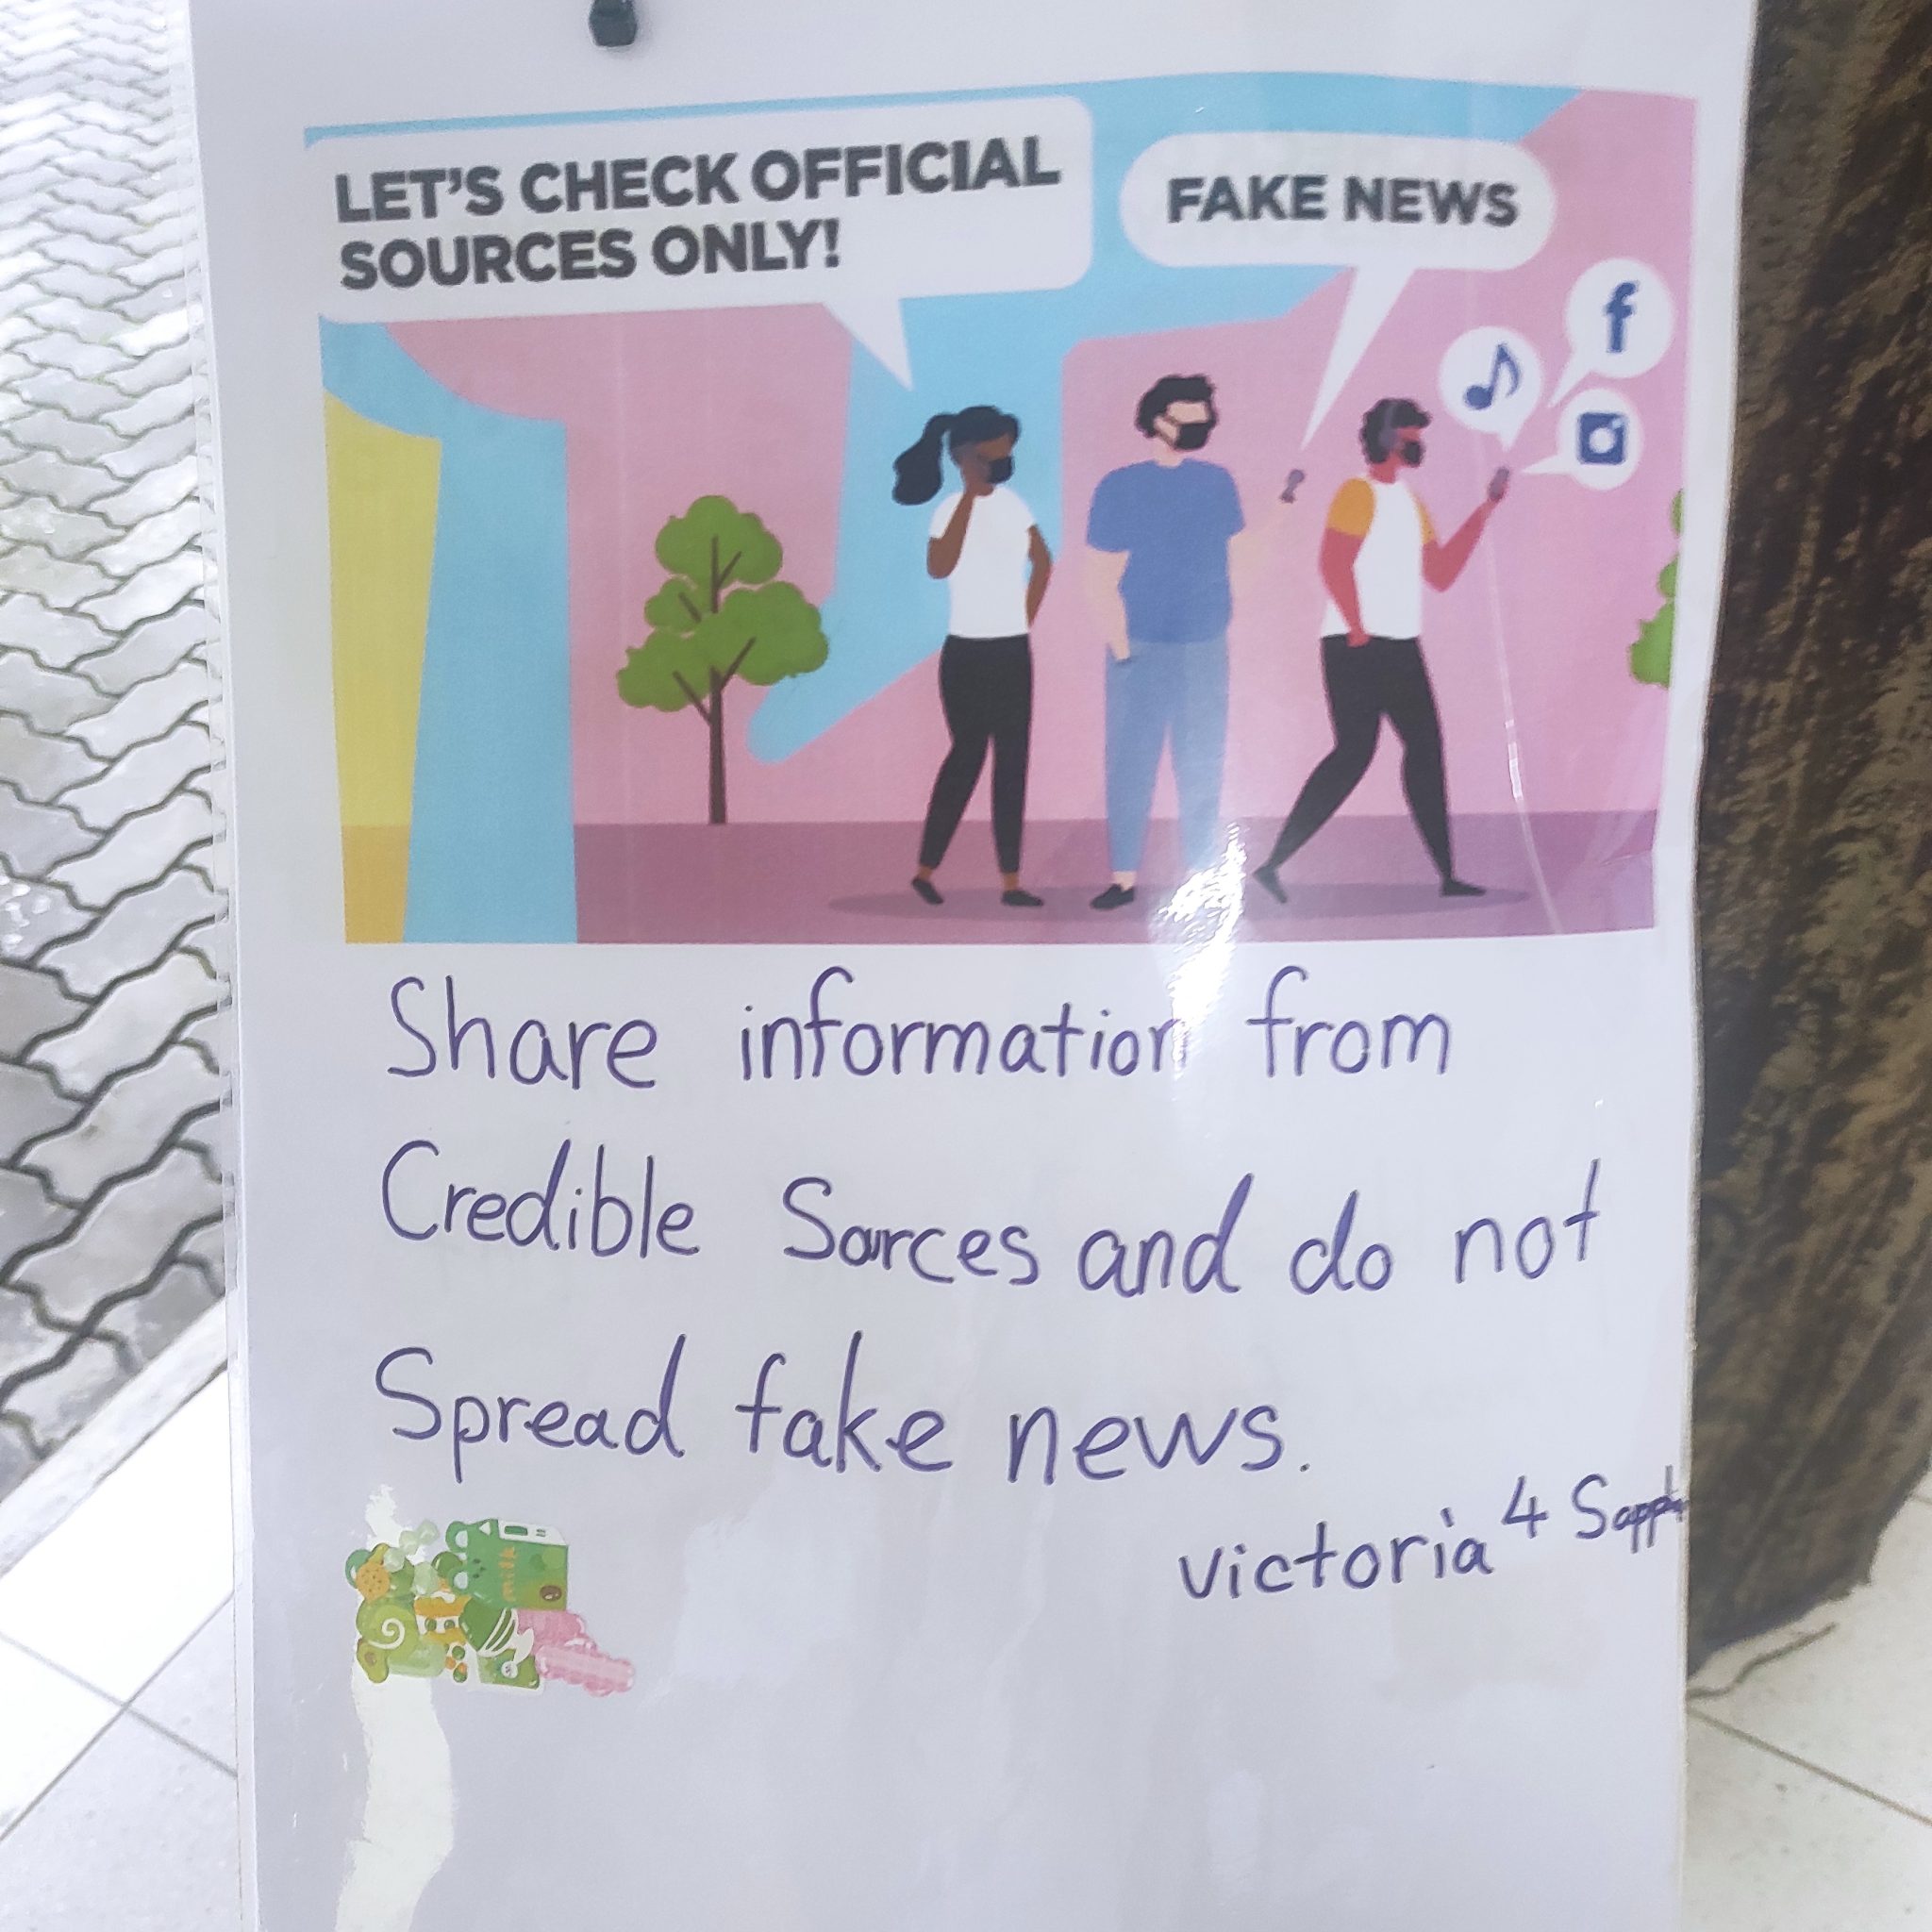 LET'S CHECK OFFICIAL
SOURCES ONLY!
FAKE NEWS
f
Share information from
Credible Sorces and do not
Spread fake news.
victoria 4
milk